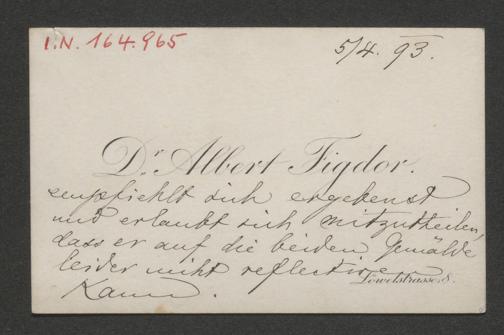 I.N. 164.965
5/4. 93.
Dr. Albert Figdor.
empfiehlt sich ergebenst
und erlaubt sich mitzutheilen,
dass er auf die beiden Gemälde
leider nicht reflectiren
kann.
Löwelstrasse, 8.